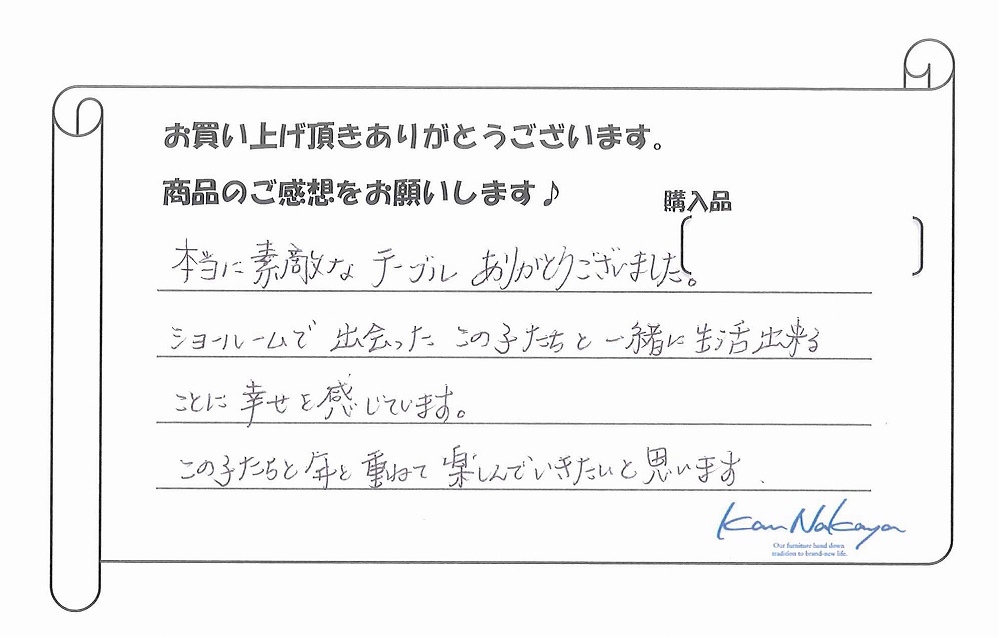 お買い上げ頂きありがとうございます。
商品のご感想をお願いします♪
購入品
本当に素敵な テーブル ありがとうございました。
ショールームで 出会った この子たちと 一緒に 生活出来る
ことに 幸せを感じています。
この子たちと 年を 重ねて 楽しんでいきたいと思います.
Kan Nakaya
Our furniture hand down
tradition to brand-new life.